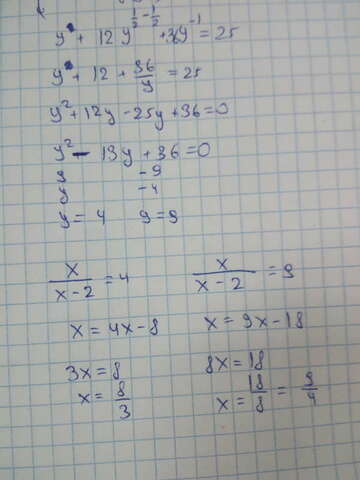 y + 12y^{1/2 - 1/2} + 36y^{-1} = 25
y + 12 + 36/y = 25
y² + 12y - 25y + 36 = 0
y² - 13y + 36 = 0
y -9
y -4
y = 4 y = 9
x/(x-2) = 4 x/(x-2) = 9
x = 4x - 8 x = 9x - 18
3x = 8 8x = 18
x = 8/3 x = 18/8 = 9/4